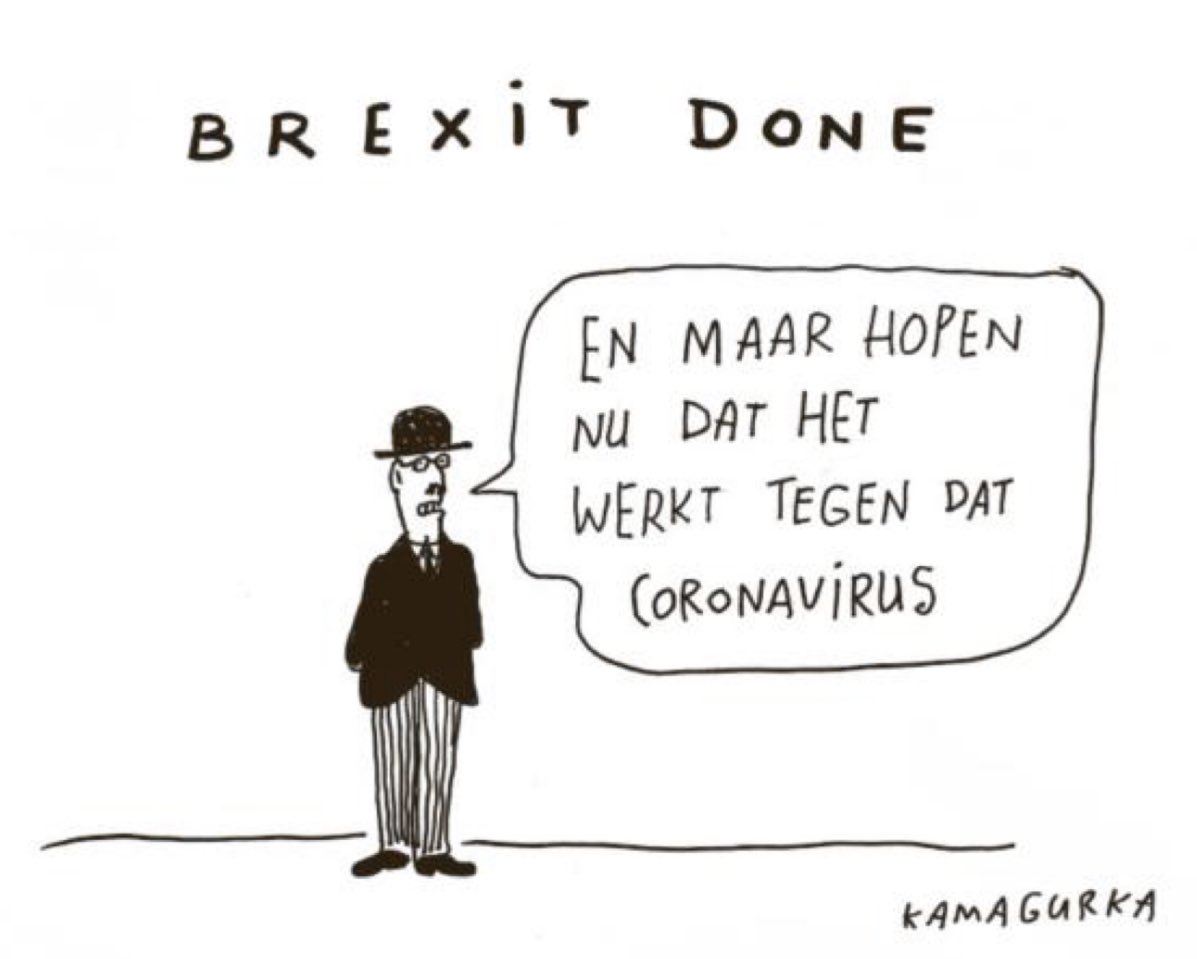 BREXiT DONE
EN MAAR HOPEN
NU DAT HET
WERKT TEGEN DAT
CORONAViRUS
KAMAGURKA